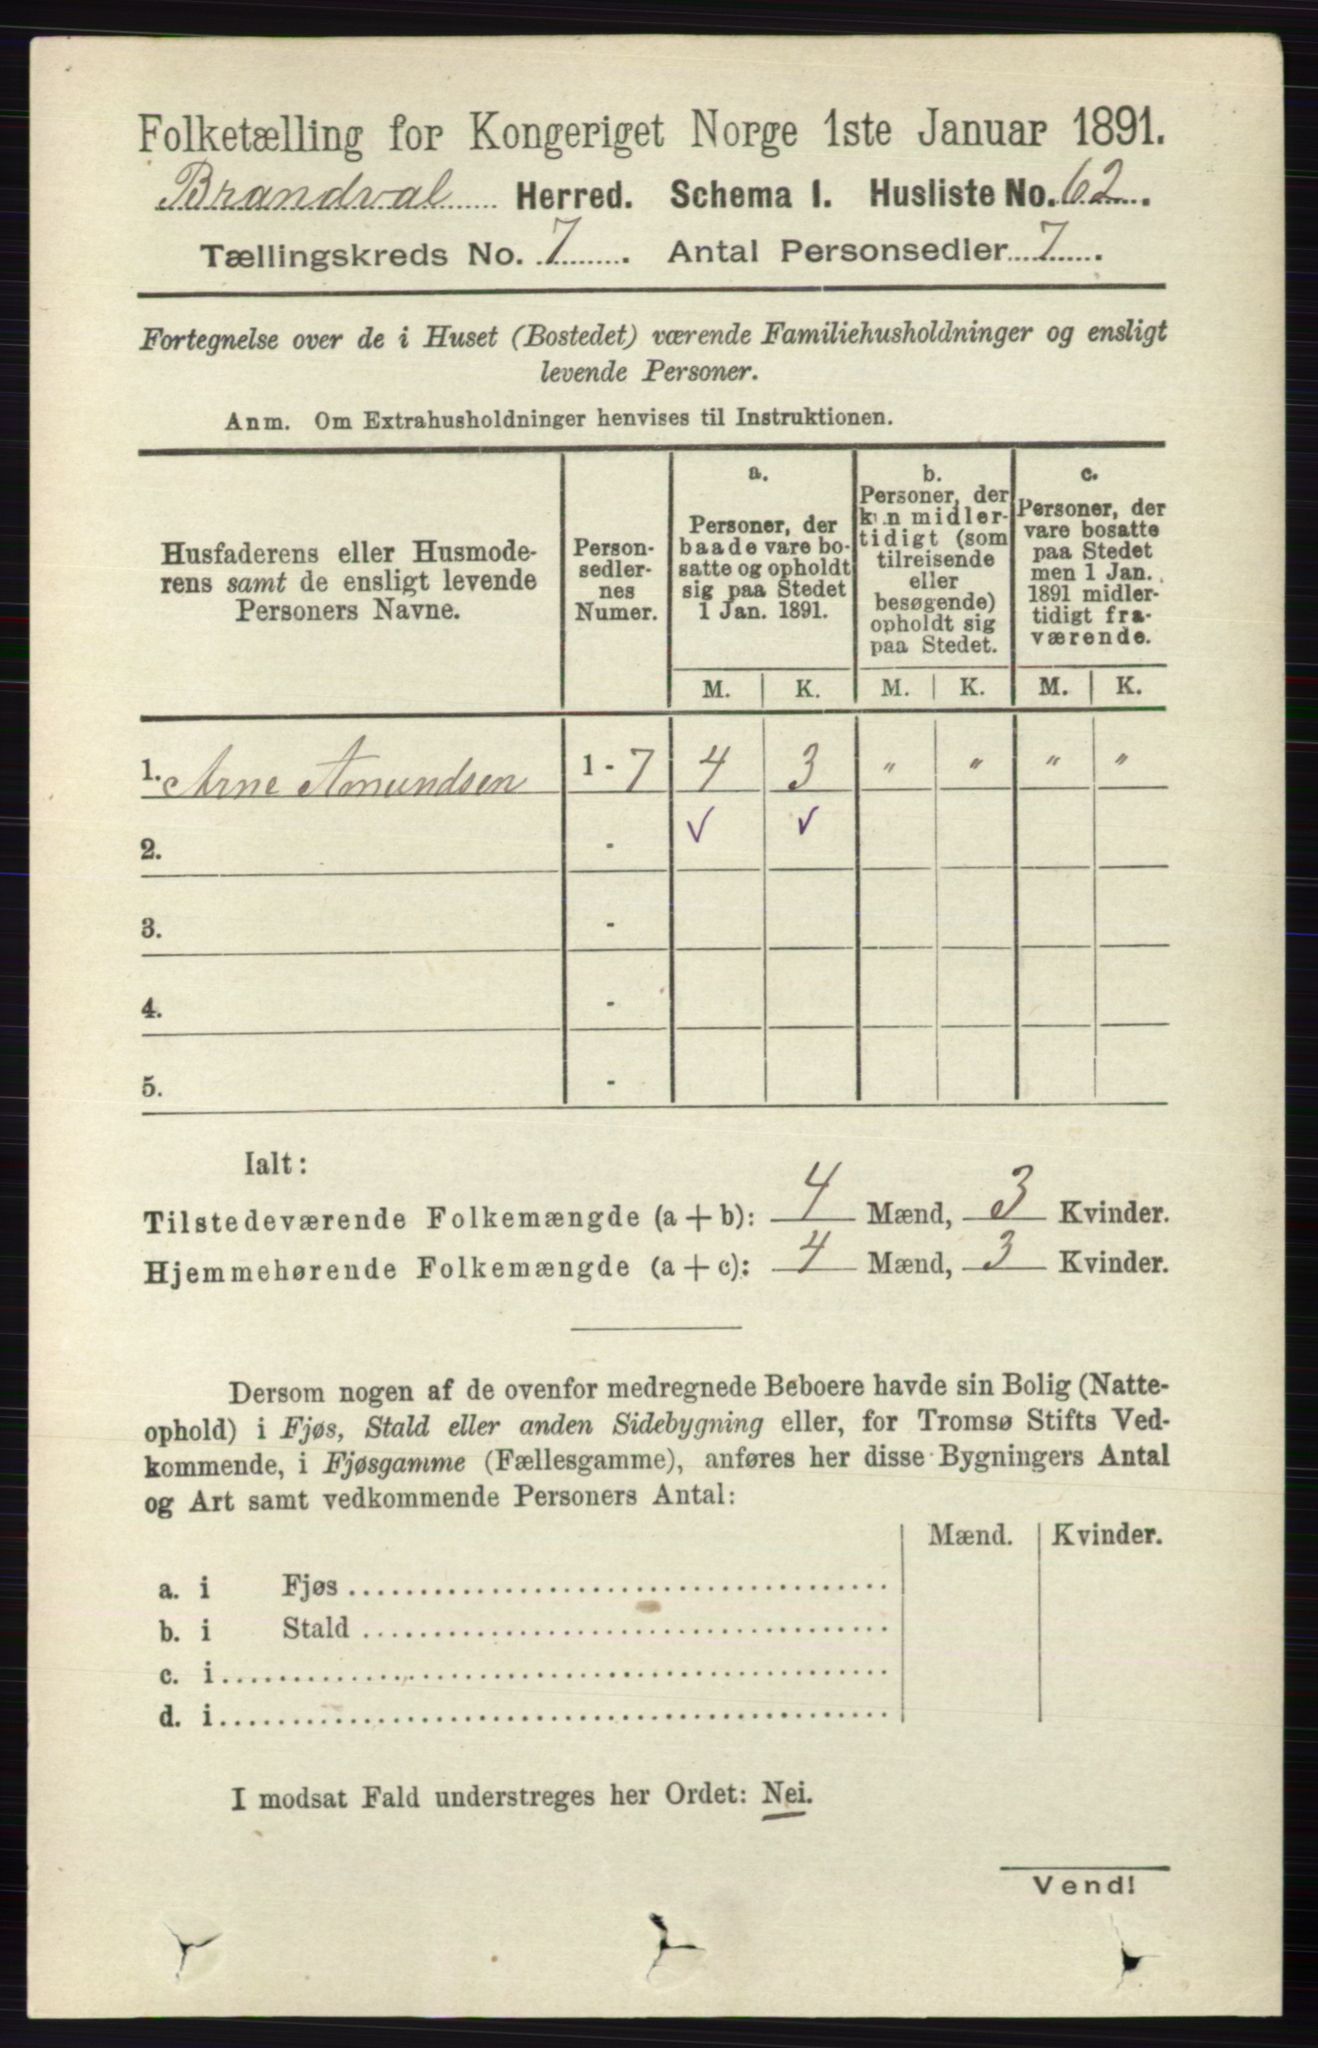 Folketælling for Kongeriget Norge 1ste Januar 1891.
Brandval Herred. Schema I. Husliste No. 62.
Tællingskreds No. 7. Antal Personsedler 7.
Fortegnelse over de i Huset (Bostedet) værende Familiehusholdninger og ensligt
levende Personer.
Anm. Om Extrahusholdninger henvises til Instruktionen.
Husfaderens eller Husmode-
rens samt de ensligt levende
Personers Navne.
Person-
sedler-
nes
Numer.
a.
Personer, der
baade vare bo-
satte og opholdt
sig paa Stedet
1 Jan. 1891.
b.
Personer, der
kun midler-
tidigt (som
tilreisende
eller
besøgende)
opholdt sig
paa Stedet.
c.
Personer, der
vare bosatte
paa Stedet
men 1 Jan.
1891 midler-
tidigt fra-
værende.
M. K. M. K. M. K.
1. Arne Amundsen 1 - 7 4 3 " " " "
2. - ✓ ✓
3. -
4. -
5. -
Ialt:
Tilstedeværende Folkemængde (a + b): 4 Mænd, 3 Kvinder.
Hjemmehørende Folkemængde (a + c): 4 Mænd, 3 Kvinder.
Dersom nogen af de ovenfor medregnede Beboere havde sin Bolig (Natte-
ophold) i Fjøs, Stald eller anden Sidebygning eller, for Tromsø Stifts Ved-
kommende, i Fjøsgamme (Fællesgamme), anføres her disse Bygningers Antal
og Art samt vedkommende Personers Antal:
Mænd. Kvinder.
a. i Fjøs
b. i Stald
c. i
d. i
I modsat Fald understreges her Ordet: Nei.
Vend!